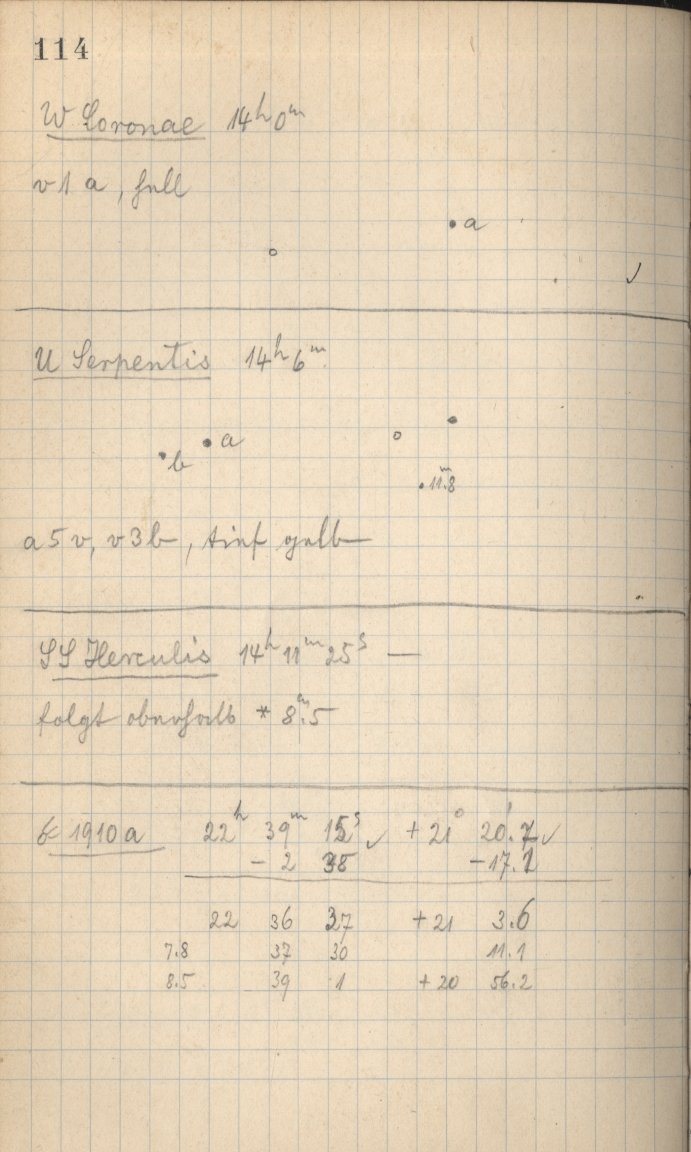 114
W Coronae 14ʰ0ᵐ
v1a, hell
a
U Serpentis 14ʰ6ᵐ
a
b
11ᵐ.8
a5v, v3b, tief gelb
SS Herculis 14ʰ 11ᵐ 25ˢ —
folgt oberhalb * 8ᵐ.5
☄ 1910a 22ʰ 39ᵐ 15ˢ ✓ +21° 20'.7 ✓
−2 38 −17.1
22 36 37 +21 3.6
7.8 37 30 11.1
8.5 39 1 +20 56.2